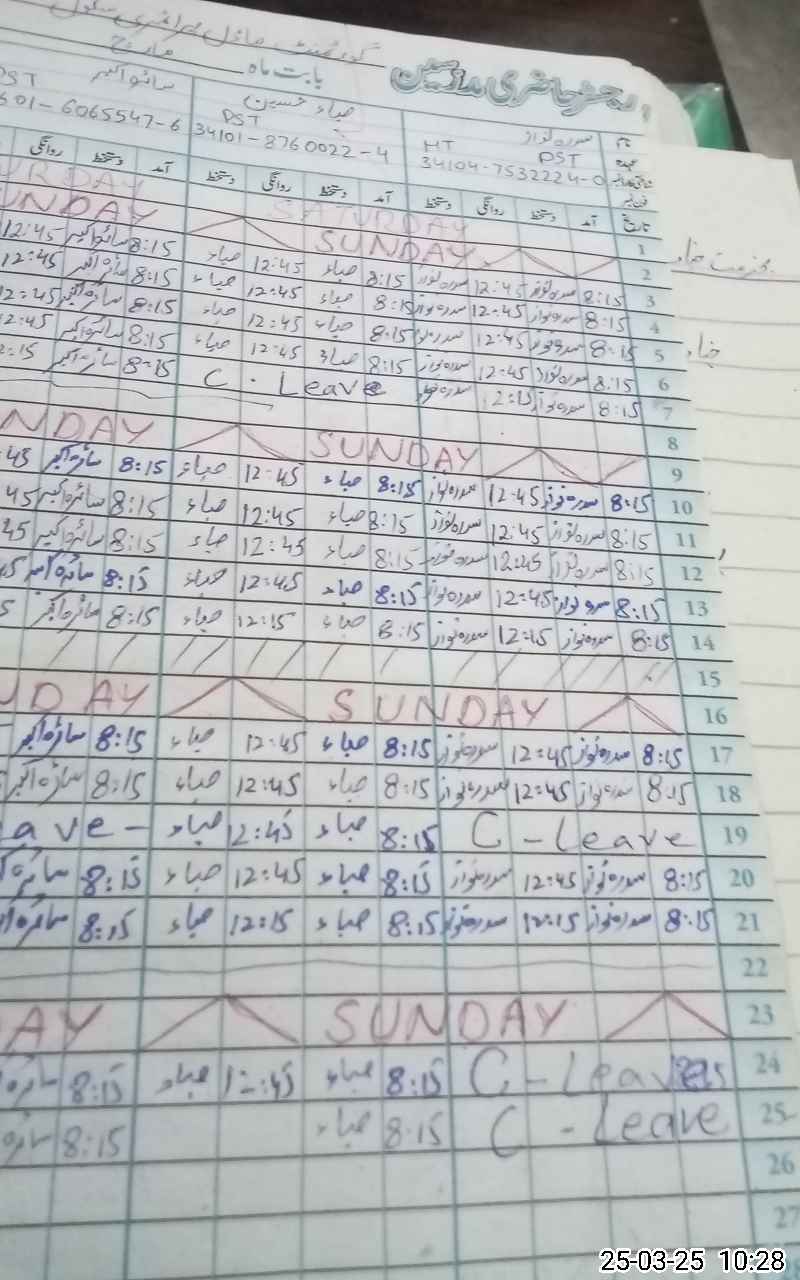 گورنمنٹ ماڈل پرائمری سکول
رجسٹر حاضری مدرسین بابت ماہ مارچ
نام سدرہ نواز ضباء حسین سائرہ اکبر
عہدہ HT PST PST PST
34104-7532224-0 34101-8760022-4 601-6065547-6
تاریخ آمد دستخط روانگی دستخط آمد دستخط روانگی دستخط آمد دستخط روانگی
1 SATURDAY URDAY
2 SUNDAY UNDAY
3 8:15 سدرہ نواز 12:45 سدرہ نواز 8:15 ضباء 12:45 ضباء 8:15 سائرہ اکبر 12:45
4 8:15 سدرہ نواز 12:45 سدرہ نواز 8:15 ضباء 12:45 ضباء 8:15 سائرہ اکبر 12:45
5 8:15 سدرہ نواز 12:45 سدرہ نواز 8:15 ضباء 12:45 ضباء 8:15 سائرہ اکبر 2:45
6 8:15 سدرہ نواز 12:45 سدرہ نواز 8:15 ضباء 12:45 ضباء 8:15 سائرہ اکبر 2:45
7 8:15 سدرہ نواز 12:15 سدرہ نواز C - Leave 8:15 سائرہ اکبر 2:15
8
9 SUNDAY NDAY
10 8:15 سدرہ نواز 12:45 سدرہ نواز 8:15 ضباء 12:45 ضباء 8:15 سائرہ اکبر 45
11 8:15 سدرہ نواز 12:45 سدرہ نواز 8:15 ضباء 12:45 ضباء 8:15 سائرہ اکبر 45
12 8:15 سدرہ نواز 12:45 سدرہ نواز 8:15 ضباء 12:45 ضباء 8:15 سائرہ اکبر 45
13 8:15 سدرہ نواز 12:45 سدرہ نواز 8:15 ضباء 12:45 ضباء 8:15 سائرہ اکبر 45
14 8:15 سدرہ نواز 12:15 سدرہ نواز 8:15 ضباء 12:15 ضباء 8:15 سائرہ اکبر 5
15
16 SUNDAY UDAY
17 8:15 سدرہ نواز 12:45 سدرہ نواز 8:15 ضباء 12:45 ضباء 8:15 سائرہ اکبر
18 8:15 سدرہ نواز 12:45 سدرہ نواز 8:15 ضباء 12:45 ضباء 8:15 سائرہ اکبر
19 C - Leave 8:15 ضباء 12:45 ضباء ave -
20 8:15 سدرہ نواز 12:45 سدرہ نواز 8:15 ضباء 12:45 ضباء 8:15 سائرہ
21 8:15 سدرہ نواز 12:15 سدرہ نواز 8:15 ضباء 12:15 ضباء 8:15 سائرہ
22
23 SUNDAY AY
24 C - Leave 8:15 ضباء 12:45 ضباء 8:15 سائرہ
25 C - Leave 8:15 ضباء 8:15 سائرہ
26
27
25-03-25 10:28